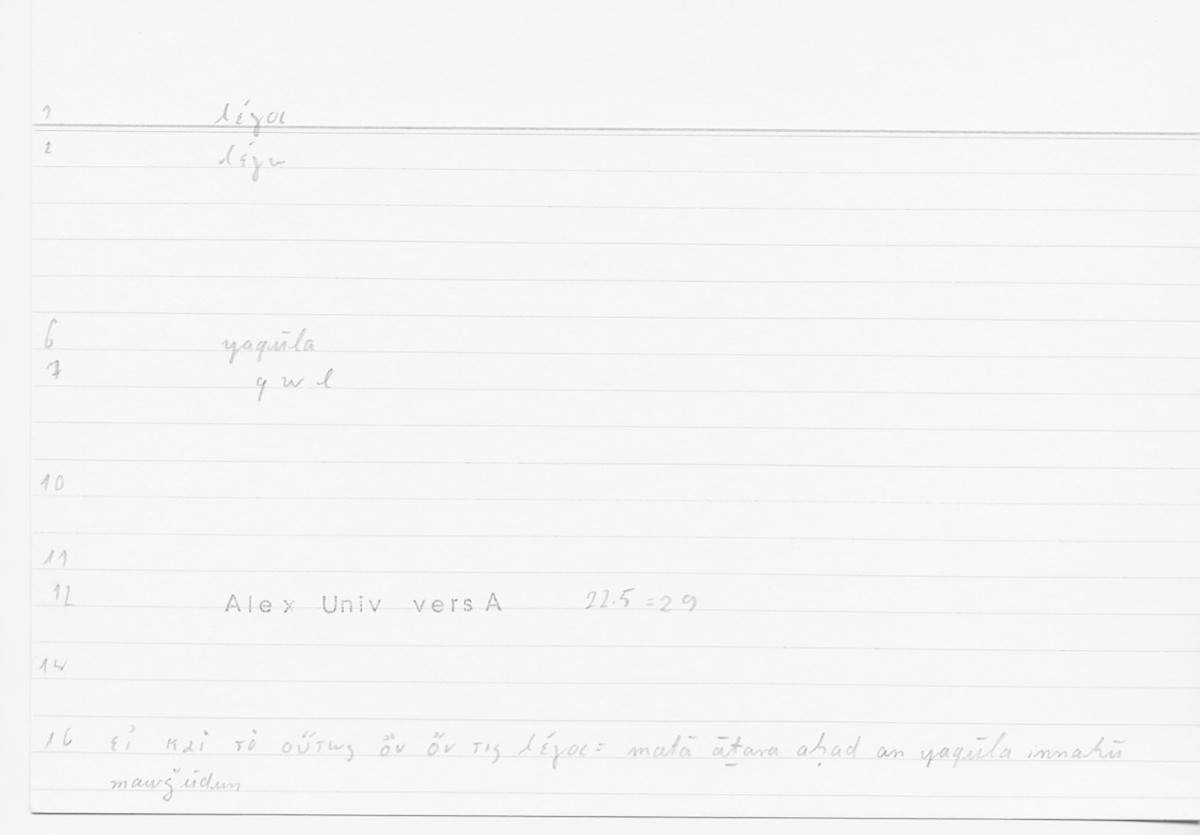 1 λέγοι
2 λέγω
6 yaqūla
7 q w l
10
11
12 Alex Univ vers A 22.5 = 29
14
16 εἰ καὶ τὸ οὕτως ὂν ὄν τις λέγοι = matā āṯara aḥad an yaqūla innahū
mawǧūdun